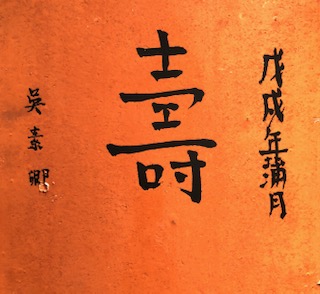 戊戌年蒲月
壽
吳素卿